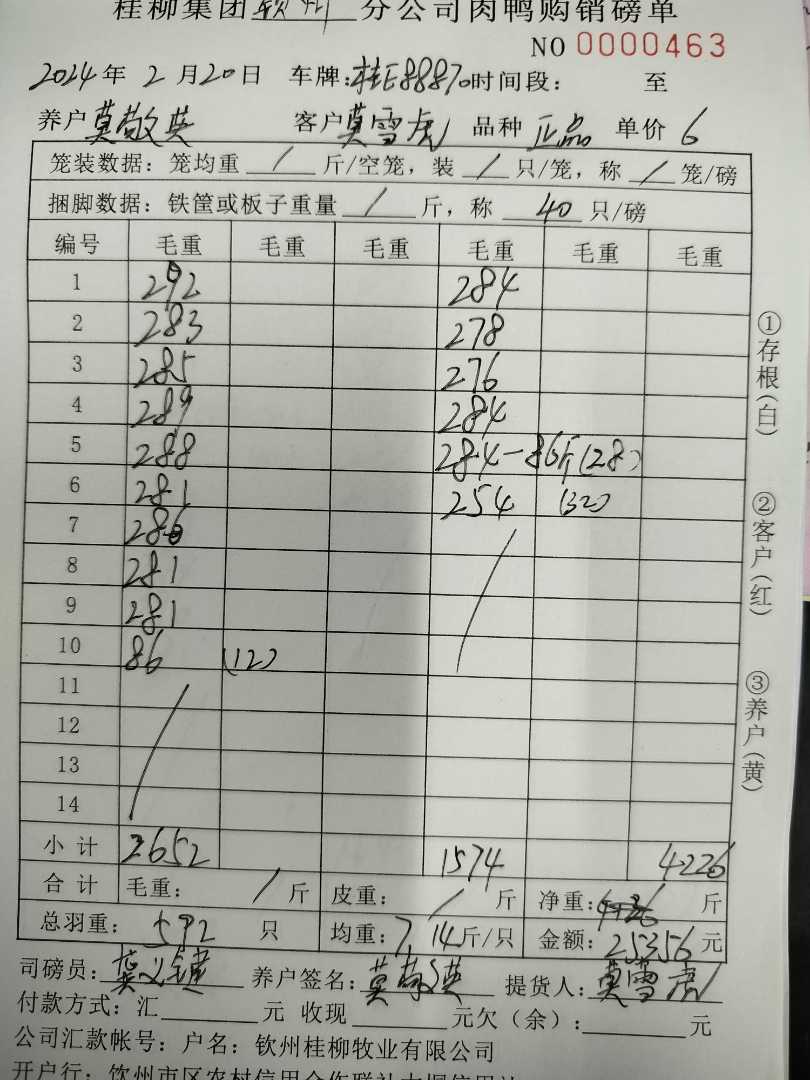 桂柳集团钦州分公司肉鸭购销磅单
NO 0000463
2024年2月20日 车牌:桂E88870时间段: 至
养户莫敬英 客户莫雪虎 品种 正品 单价 6
笼装数据: 笼均重 / 斤/空笼, 装 / 只/笼, 称 / 笼/磅
捆脚数据: 铁筐或板子重量 / 斤, 称 40 只/磅
编号 毛重 毛重 毛重 毛重 毛重 毛重
1 292 284
2 283 278
3 285 276
4 289 284
5 288 284-86斤(28)
6 281 254 (32)
7 286
8 281
9 281
10 86 (12)
11
12
13
14
小计 2652 1574 4226
合计 毛重: / 斤 皮重: / 斤 净重: 斤
总羽重: 592 只 均重: 7.14斤/只 金额: 25356元
司磅员: 养户签名: 莫敬英 提货人: 莫雪虎
付款方式: 汇 元 收现 元欠(余): 元
公司汇款帐号: 户名: 钦州桂柳牧业有限公司
开户行: 钦州市区农村信用合作联社大垌信用社
①存根(白) ②客户(红) ③养户(黄)